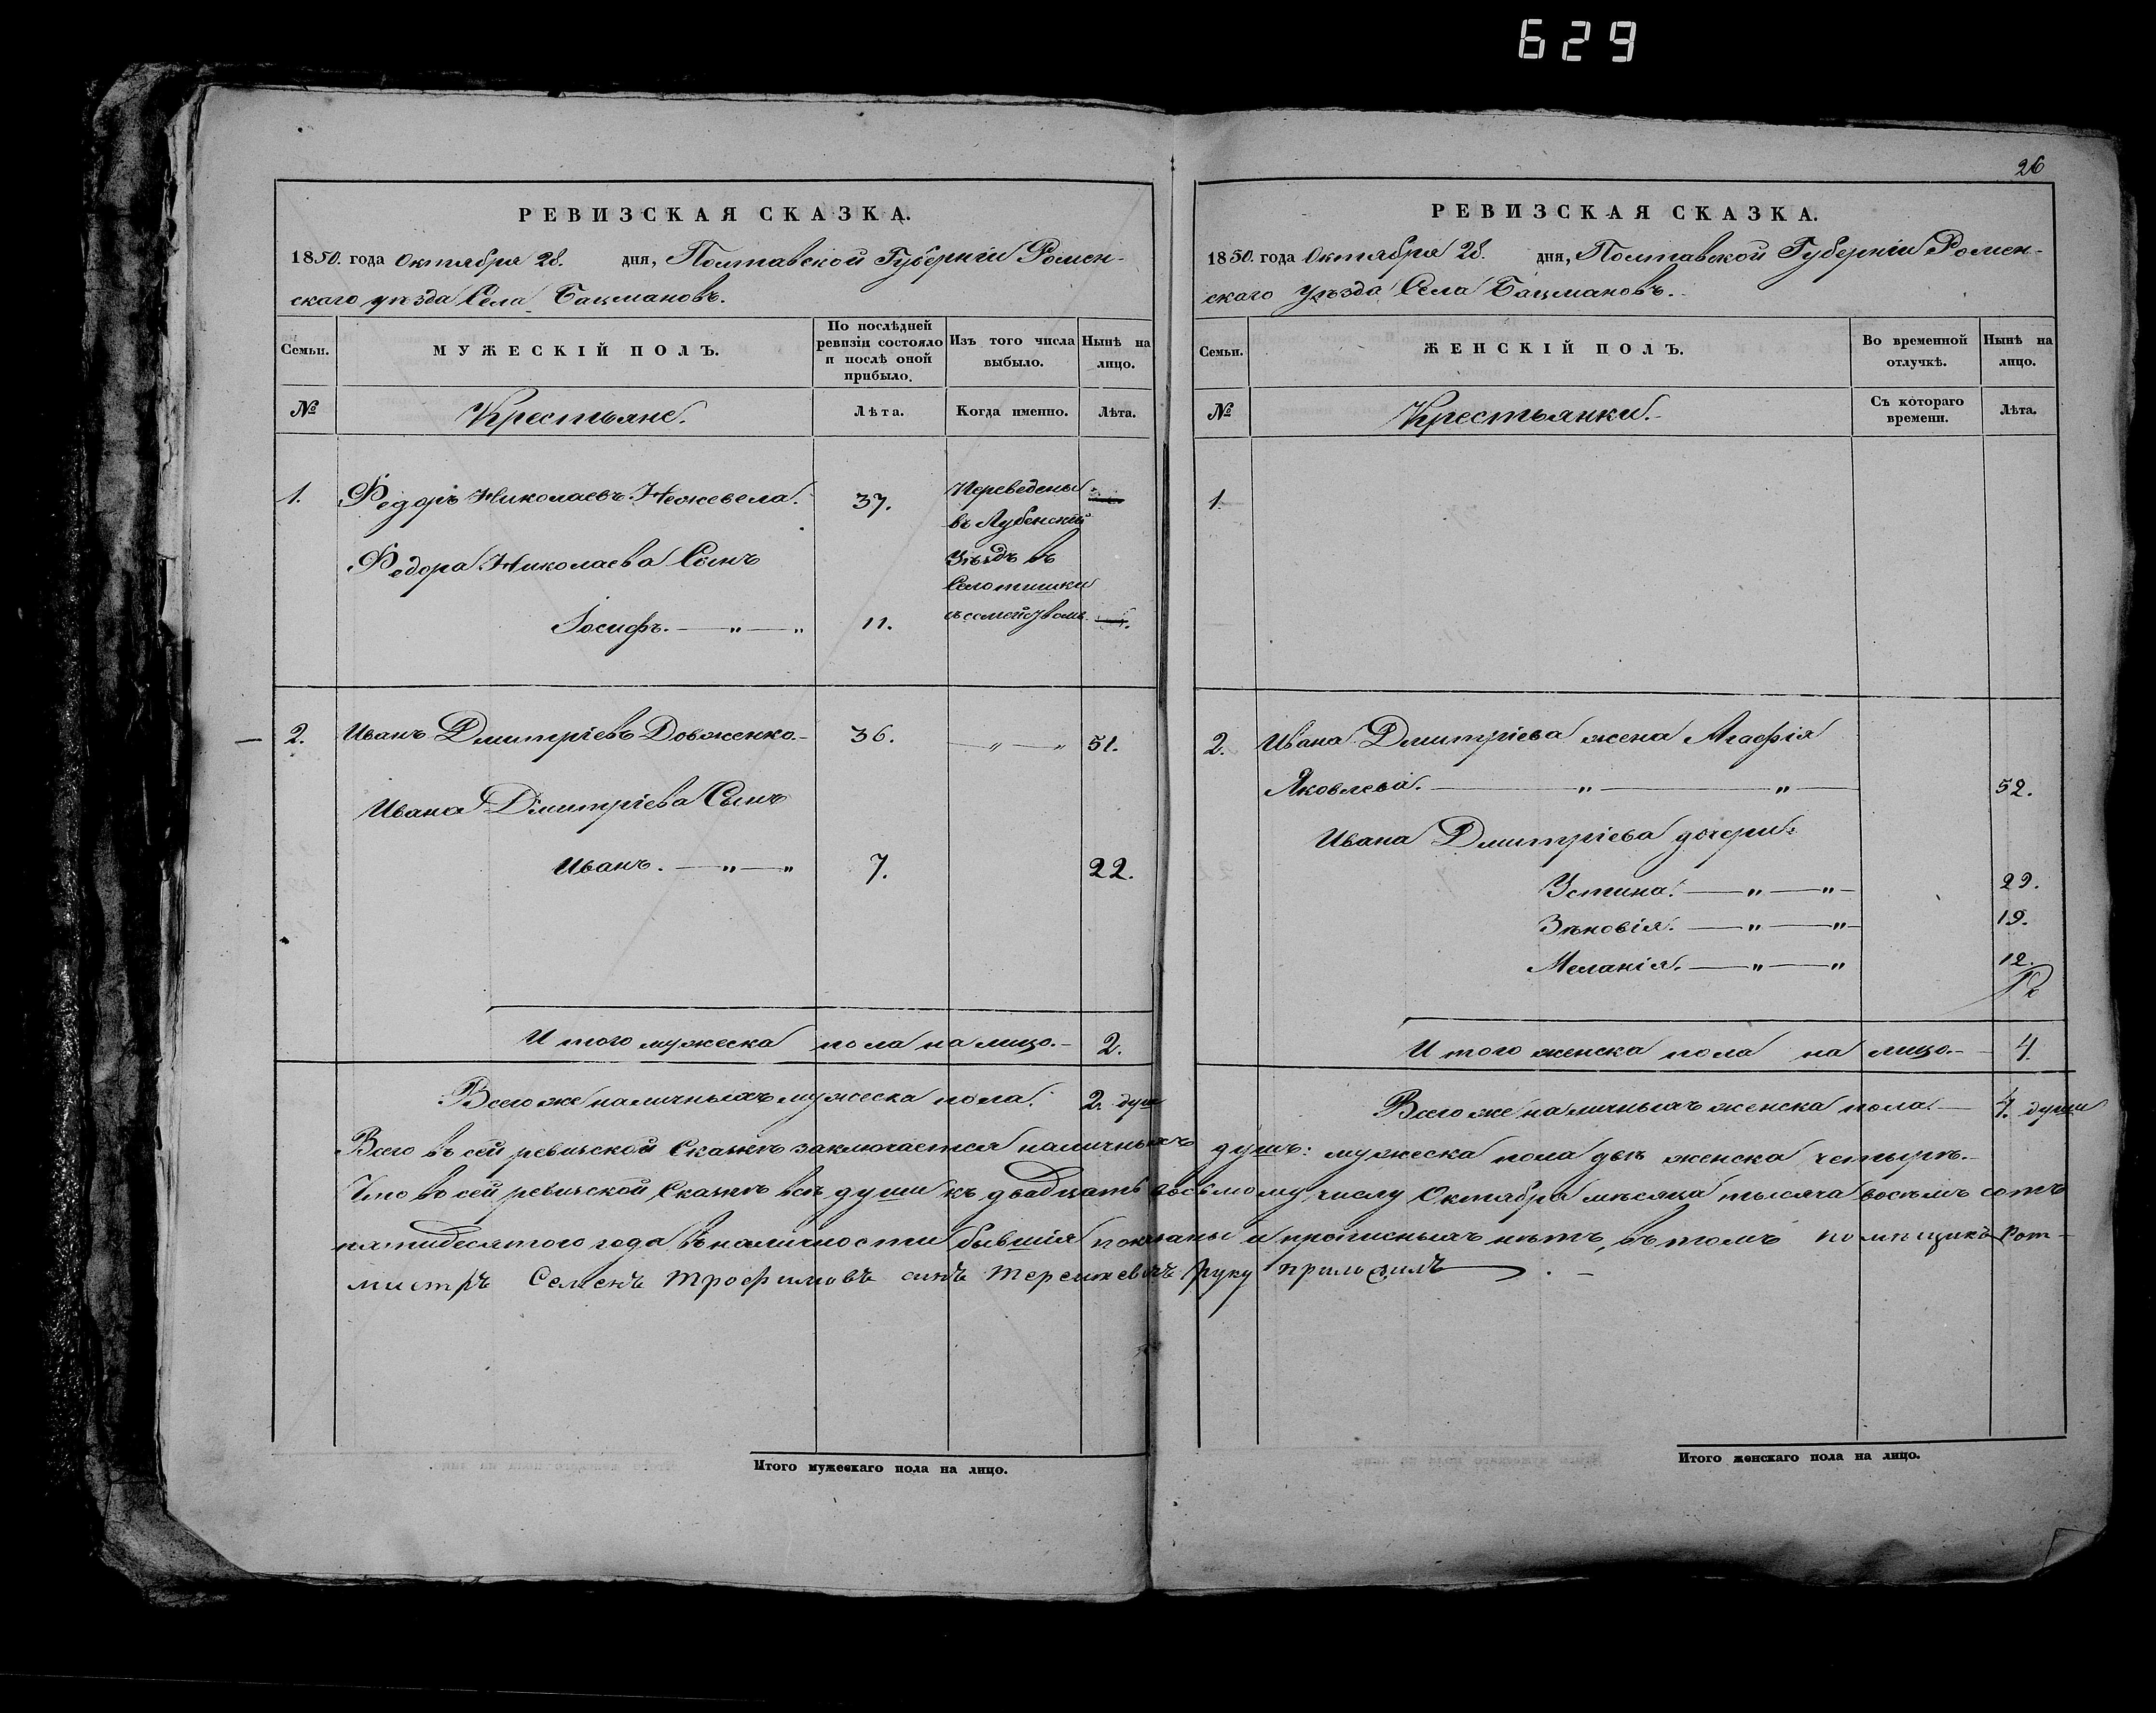 629
РЕВИЗСКАЯ СКАЗКА.
1850. года Октября 28. дня, Полтавской Губерніи Ромен-
скаго уѣзда Села Бацмановъ.
Семьи. МУЖЕСКІЙ ПОЛЪ. По послѣдней ревизіи состояло и послѣ оной прибыло. Изъ того числа выбыло. Нынѣ на лицо.
№ Крестьяне. Лѣта. Когда именно. Лѣта.
1. Федоръ Николаевъ Нежевела. 37. Переведены
въ Лубенскій
Федора Николаева Сынъ Уѣздъ въ
Іосифъ. — „ — „ 11. съ семействомъ.
2. Иванъ Дмитріевъ Довженко. 36. — „ — „ 51.
Ивана Дмитріева Сынъ
Иванъ. — „ — „ 7. 22.
И того мужеска пола на лицо. 2.
Всего же наличныхъ мужеска пола. 2. душ
26
РЕВИЗСКАЯ СКАЗКА.
1850. года Октября 28. дня, Полтавской Губерніи Ромен-
скаго уѣзда Села Бацмановъ.
Семьи. ЖЕНСКІЙ ПОЛЪ. Во временной отлучкѣ. Нынѣ на лицо.
№ Крестьянки. Съ котораго времени. Лѣта.
1.
2. Ивана Дмитріева жена Агафія
Яковлева. — „ — „ — 52.
Ивана Дмитріева дочери:
Устина. — „ — „ — 29.
Зѣновія. — „ — „ — 19.
Меланія. — „ — „ 12.
И того женска пола на лицо. 4.
Всего же наличныхъ женска пола. — 4. души
Всего въ сей ревизской Сказкѣ заключается наличныхъ душъ: мужеска пола двѣ женска четыре.
Что въ сей ревизской Сказкѣ всѣ души къ двадцать восьмому числу Октября мѣсяца тысяча восемь сотъ
пятидесятого года въ наличности бывшія показаны и прописныхъ нѣтъ, въ томъ помѣщикъ Рот-
мистръ Семенъ Трофимовъ синъ руку приложилъ
Итого мужескаго пола на лицо.
Итого женскаго пола на лицо.